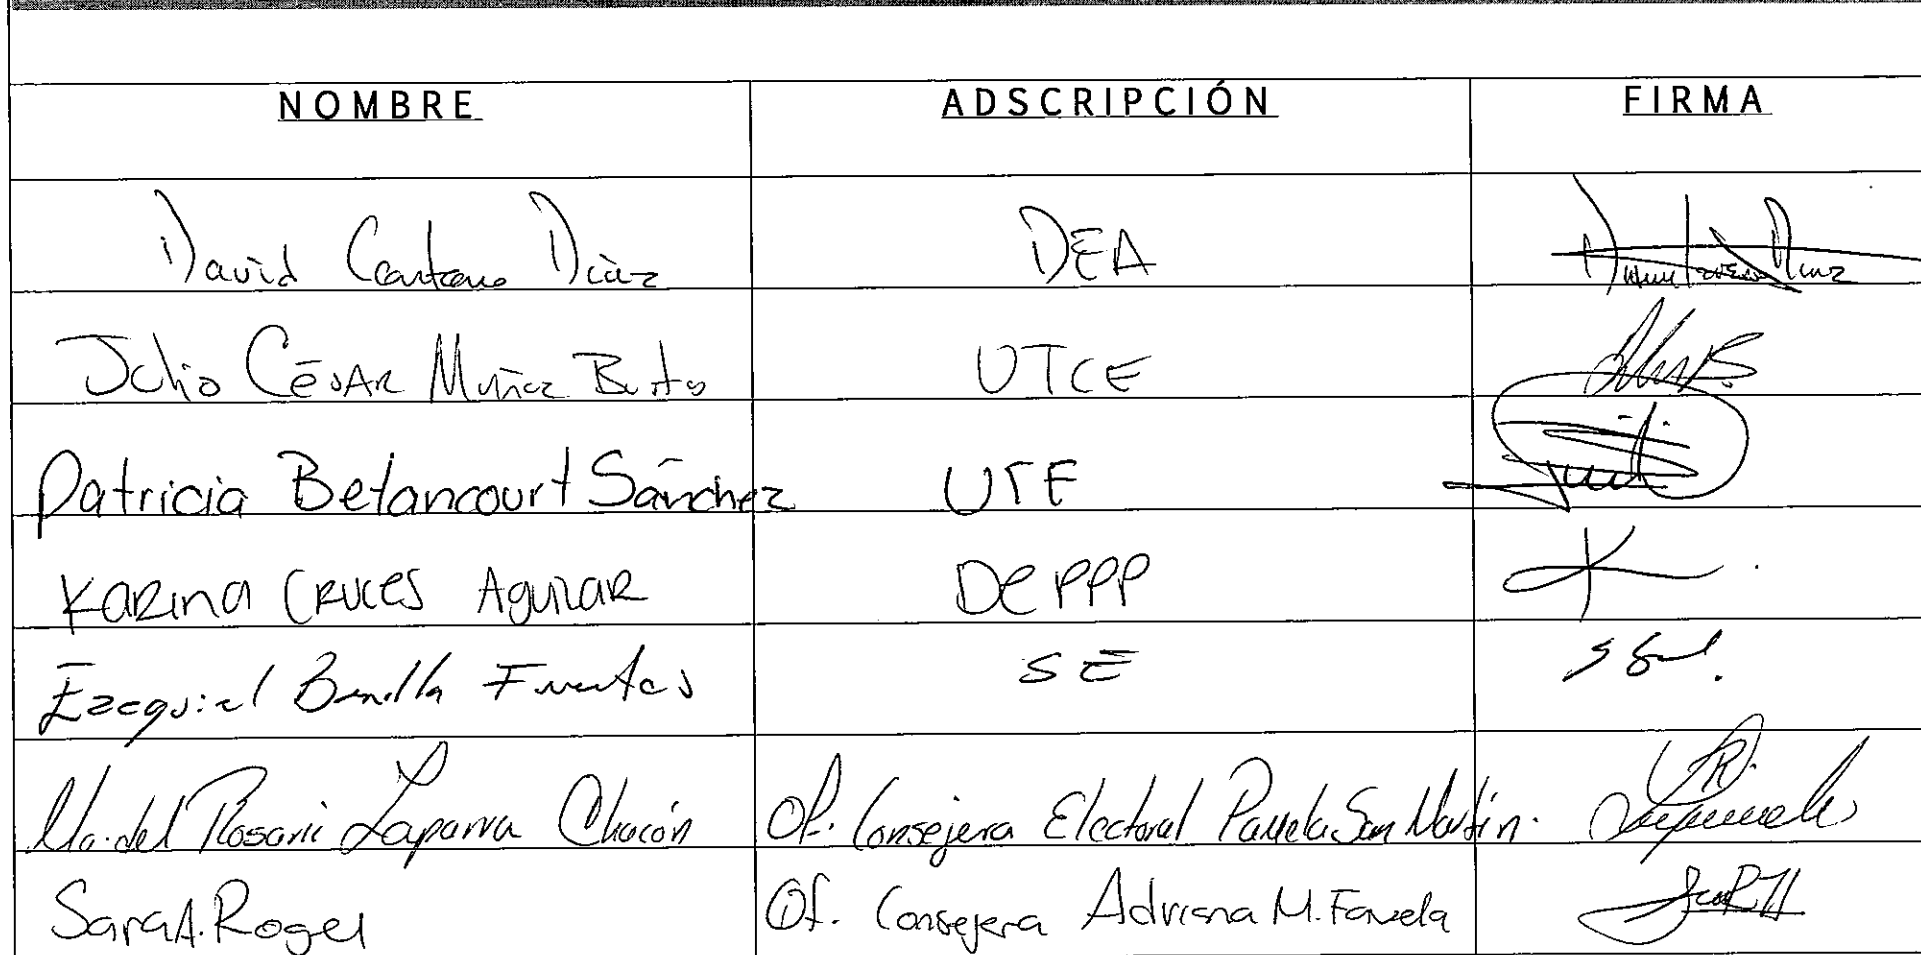 NOMBRE ADSCRIPCIÓN FIRMA
David Díaz DEA
Julio César Muñoz UTCE
Patricia Betancourt Sánchez UTF
Karina Cruces Aguilar DEPPP
Ezequiel Bonilla Fuentes SE
Ma. del Rosario Laparra Chacón Of. Consejera Electoral Pamela San Martín.
Sara A. Rogel Of. Consejera Adriana M. Favela